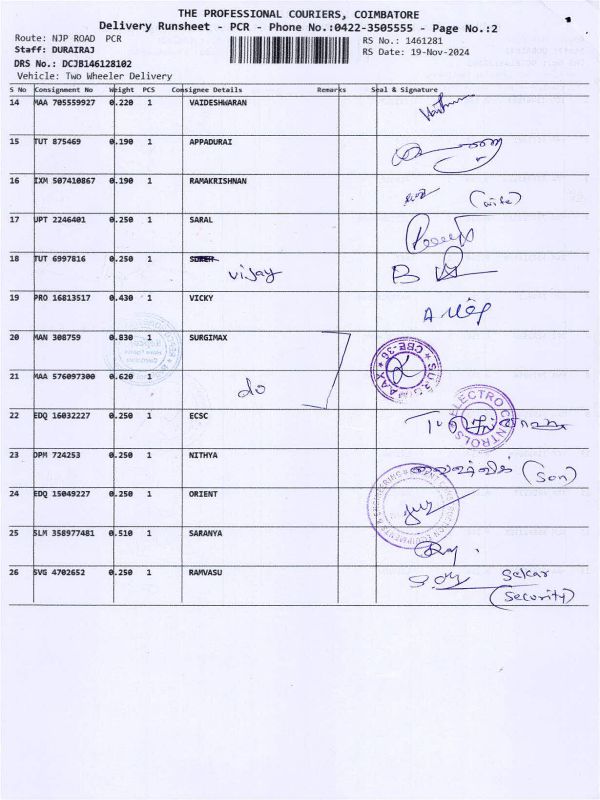 THE PROFESSIONAL COURIERS, COIMBATORE
Delivery Runsheet - PCR - Phone No.:0422-3505555 - Page No.:2
Route: NJP ROAD PCR
RS No.: 1461281
Staff: DURAIRAJ
RS Date: 19-Nov-2024
DRS No.: DCJB146128102
Vehicle: Two Wheeler Delivery
S No Consignment No Weight PCS Consignee Details Remarks Seal & Signature
14 MAA 705559927 0.220 1 VAIDESHWARAN
15 TUT 875469 0.190 1 APPADURAI
16 IXM 507410867 0.190 1 RAMAKRISHNAN
(wife)
17 UPT 2246401 0.250 1 SARAL
18 TUT 6997816 0.250 1
Vijay
19 PRO 16813517 0.430 1 VICKY
20 MAN 308759 0.830 1 SURGIMAX
CBE-36
21 MAA 576097300 0.620 1
do
22 EDQ 16032227 0.250 1 ECSC
ELECTRO CONTROLS
23 DPM 724253 0.250 1 NITHYA
(Son)
24 EDQ 15049227 0.250 1 ORIENT
25 SLM 358977481 0.510 1 SARANYA
26 SVG 4702652 0.250 1 RAMVASU
Sekar
(Security)